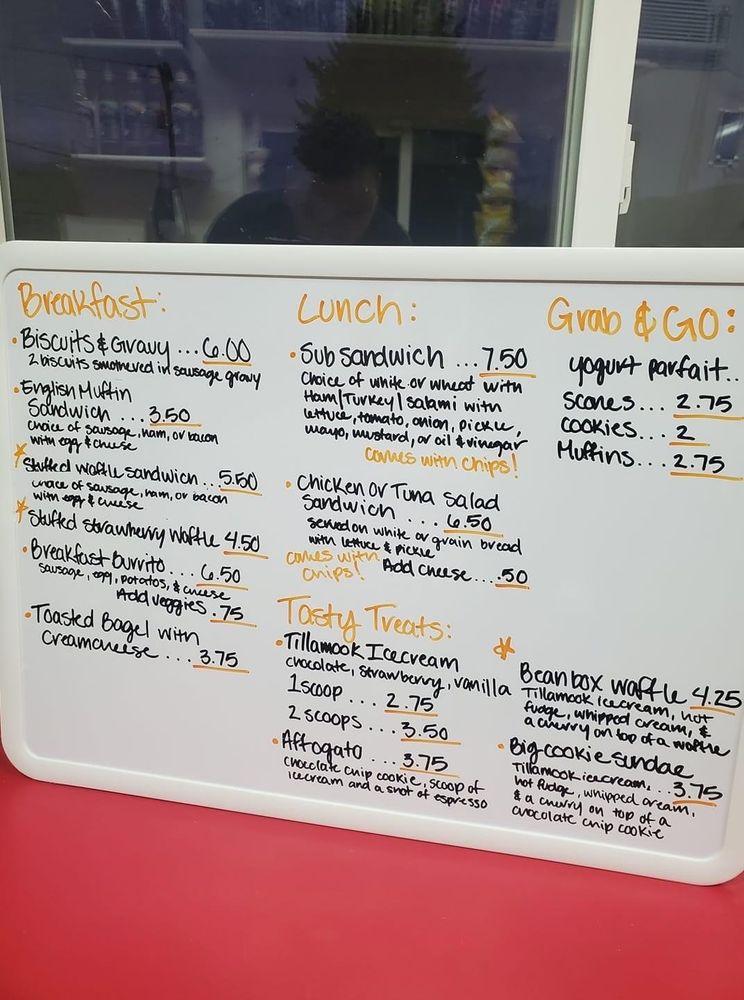 Breakfast:
• Biscuits & Gravy ... 6.00
2 biscuits smothered in sausage gravy
• English Muffin
Sandwich ... 3.50
choice of sausage, ham, or bacon
with egg & cheese
* Stuffed waffle sandwich ... 5.50
choice of sausage, ham, or bacon
with egg & cheese
* Stuffed strawberry waffle 4.50
• Breakfast Burrito .... 6.50
sausage, egg, potatos, & cheese
Add veggies .75
• Toasted Bagel with
Creamcheese ... 3.75
Lunch:
• Sub sandwich ... 7.50
Choice of white or wheat with
Ham/Turkey/Salami with
lettuce, tomato, onion, pickle,
mayo, mustard, or oil & vinegar
comes with chips!
• Chicken or Tuna Salad
Sandwich ... 6.50
served on white or grain bread
with lettuce & pickle
comes with
chips!
Add cheese .... .50
Tasty Treats:
• Tillamook Icecream
chocolate, strawberry, vanilla
1 scoop .... 2.75
2 scoops ... 3.50
• Affogato ... 3.75
chocolate chip cookie, scoop of
icecream and a shot of espresso
Grab & GO:
yogurt parfait..
Scones ... 2.75
cookies ... 2
Muffins ... 2.75
* Bean box waffle 4.25
Tillamook icecream, hot
fudge, whipped cream, &
a cherry on top of a waffle
• Big cookie sundae
Tillamook icecream, ... 3.75
hot fudge, whipped cream,
& a cherry on top of a
chocolate chip cookie